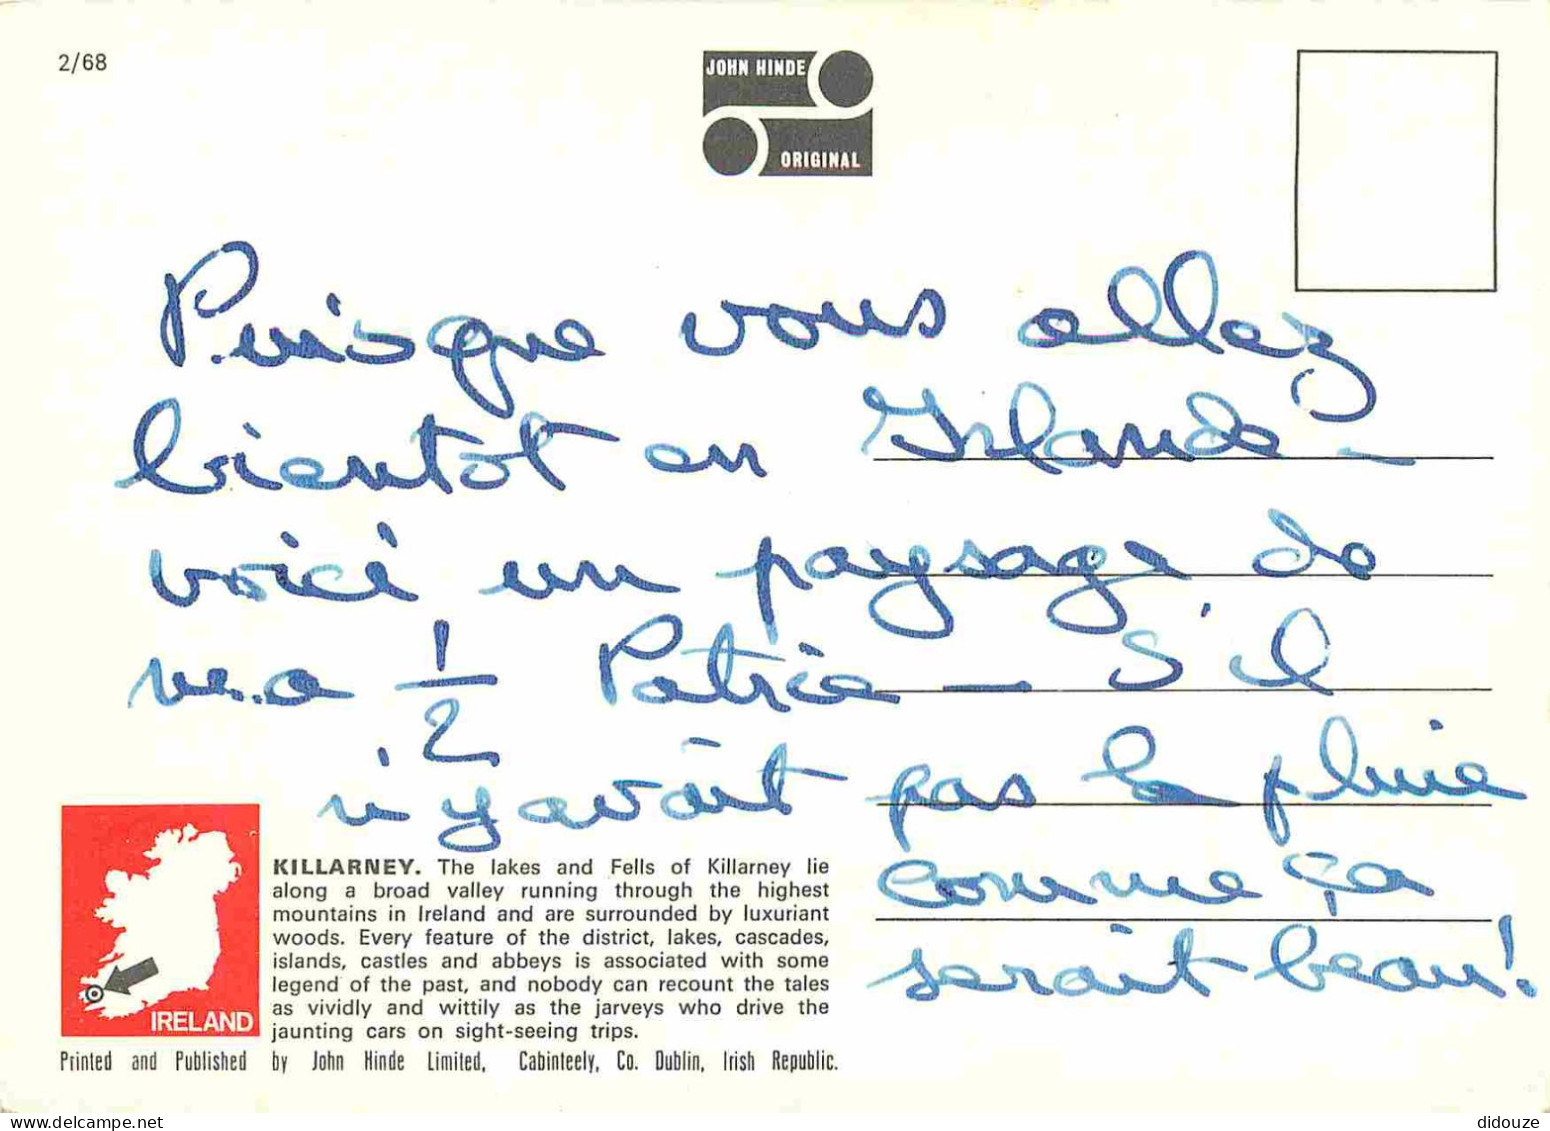 2/68
JOHN HINDE
ORIGINAL
Puisque vous allez
bientot en Irlande -
voici un paysage de
ma 1/2 Patrie - S'il
n'y avait pas la pluie
comme ça
serait beau!
KILLARNEY. The lakes and Fells of Killarney lie
along a broad valley running through the highest
mountains in Ireland and are surrounded by luxuriant
woods. Every feature of the district, lakes, cascades,
islands, castles and abbeys is associated with some
legend of the past, and nobody can recount the tales
as vividly and wittily as the jarveys who drive the
jaunting cars on sight-seeing trips.
IRELAND
Printed and Published by John Hinde Limited, Cabinteely, Co. Dublin, Irish Republic.
didouze